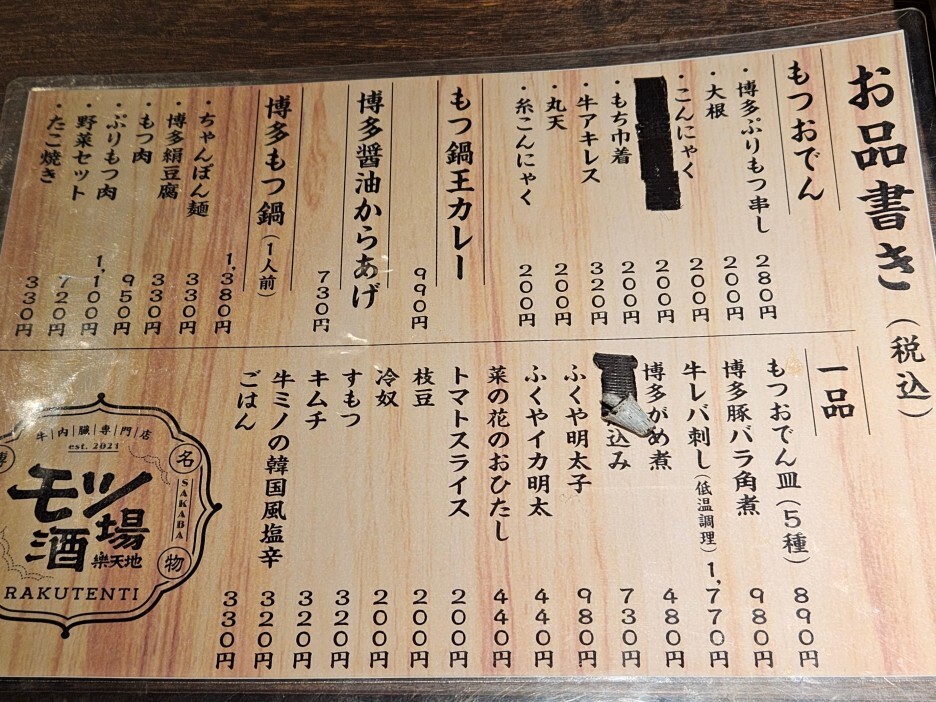 お品書き（税込）
もつおでん
・博多ぷりもつ串し 280円
・大根 200円
・こんにゃく 200円
200円
・もち巾着 200円
・牛アキレス 320円
・丸天 200円
・糸こんにゃく 200円
もつ鍋王カレー 990円
博多醤油からあげ 730円
博多もつ鍋（1人前） 1,380円
・ちゃんぽん麺 330円
・博多絹豆腐 330円
・もつ肉 950円
・ぷりもつ肉 1,100円
・野菜セット 720円
・たこ焼き 330円
一品
もつおでん皿（5種） 890円
博多豚バラ角煮 980円
牛レバ刺し（低温調理） 1,770円
博多がめ煮 480円
込み 730円
ふくや明太子 980円
ふくやイカ明太 440円
菜の花のおひたし 440円
トマトスライス 200円
枝豆 200円
冷奴 200円
すもつ 320円
キムチ 320円
牛ミノの韓国風塩辛 320円
ごはん 330円
牛内臓専門店
est. 2021
博
名
物
SAKABA
モツ
酒場
楽天地
RAKUTENTI